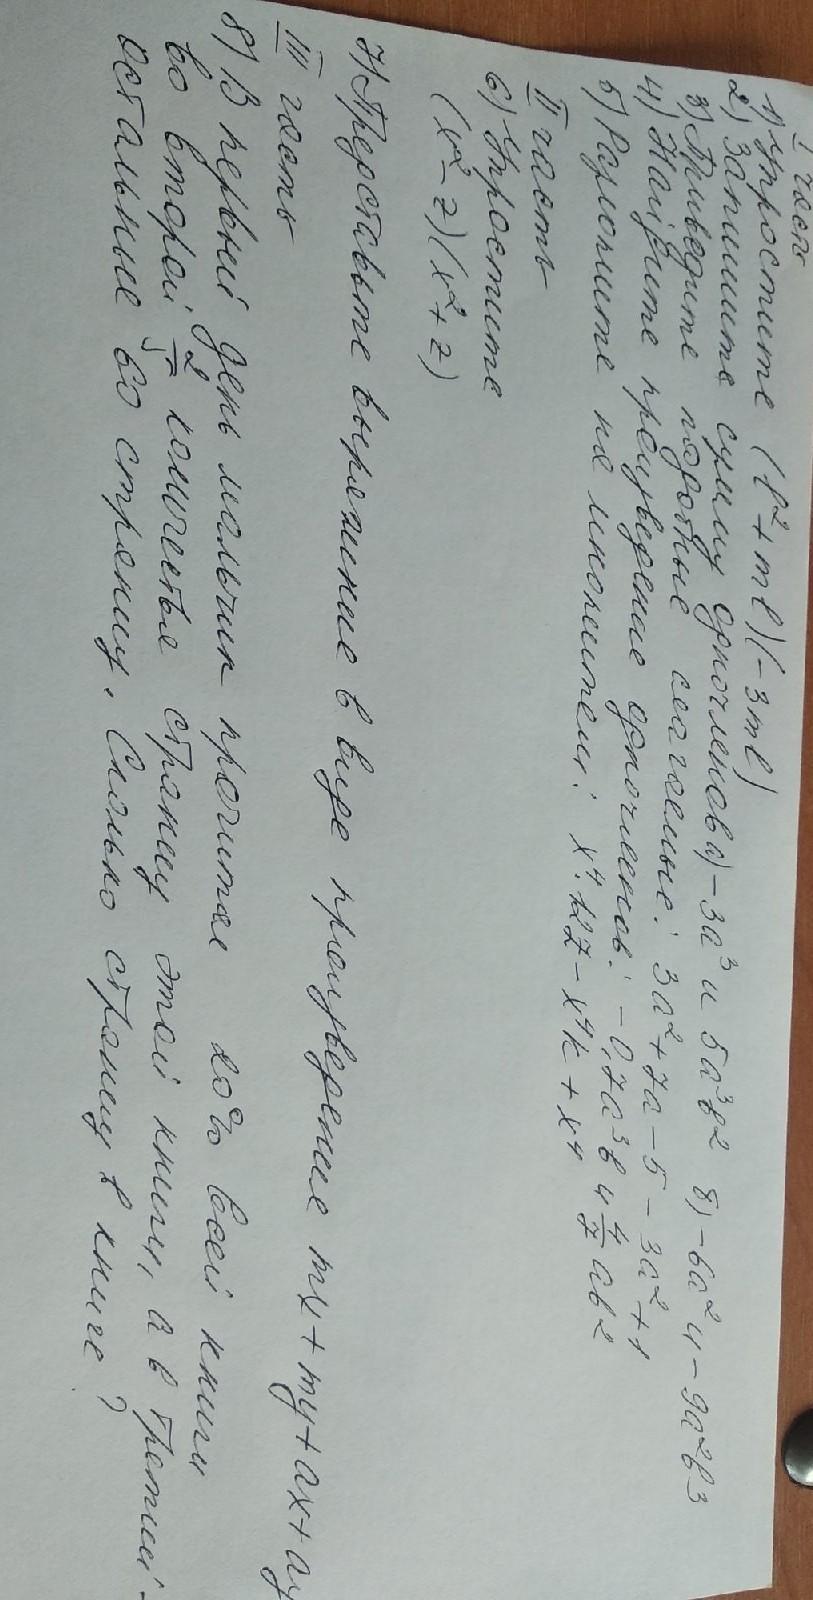 I часть
1) Упростите (l² + ml)(-3ml)
2) Запишите сумму одночленов а) -3a³ и 5a³b² б) -6a² и -9a²b³
3) Приведите подобные слагаемые: 3a² + 7a - 5 - 3a² + 1
4) Найдите произведение одночленов: -0,7a³b и 4/7 ab²
5) Разложите на множители: x⁴ - x⁴k + x⁴
II часть
6) Упростите
(x² - z)(x² + z)
7) Представьте выражение в виде произведения mx + my + ax + ay
III часть
8) В первый день мальчик прочитал 20% всей книги
во второй 2/5 количества страниц этой книги, а в третий -
остальные 60 страниц. Сколько страниц в книге?